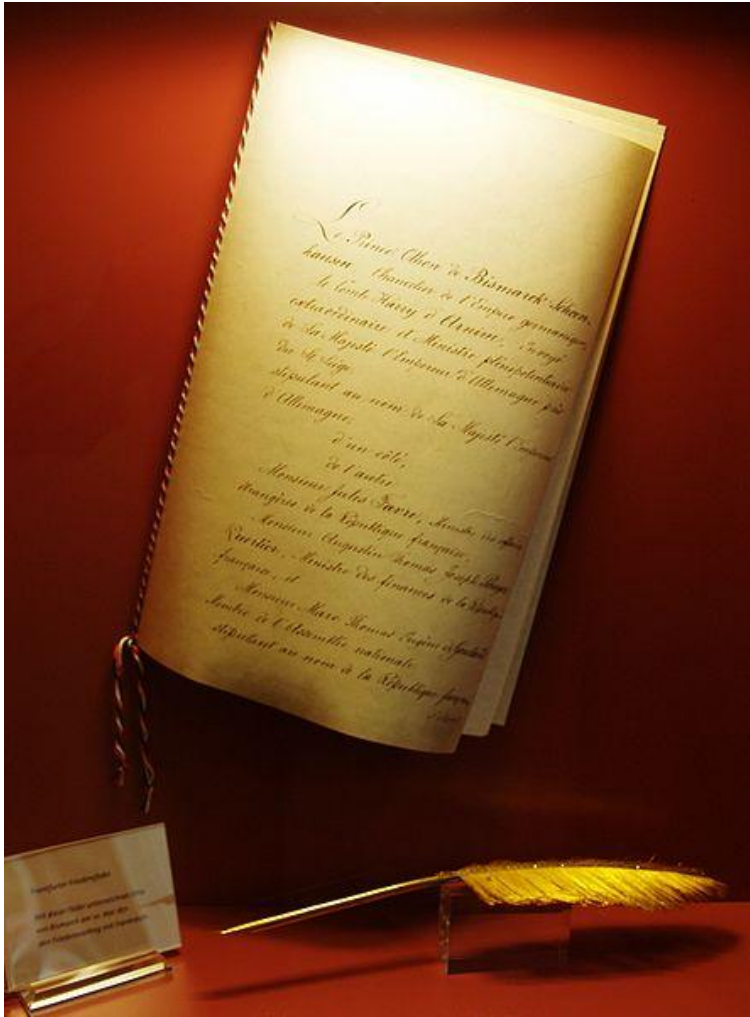 Le Prince Othon de Bismarck-Schoen-
hausen Chancelier de l'Empire germanique,
le Comte Harry d'Arnim, Envoyé
extraordinaire et Ministre plénipotentiaire
de Sa Majesté l'Empereur d'Allemagne près
du St. Siège
stipulant au nom de Sa Majesté l'Empereur
d'Allemagne,
d'un côté,
de l'autre
Monsieur Jules Favre, Ministre des affaires
étrangères de la République française,
Monsieur Augustin Thomas Joseph Pouyer-
Quertier, Ministre des finances de la République
française, et
Monsieur Marc Thomas Eugène de Goulard
Membre de l'Assemblée nationale
stipulant au nom de la République française
Frankfurter Friedensfeder
Mit dieser Feder unterzeichnete
von Bismarck am 10. Mai 1871
den Friedensvertrag mit Frankreich